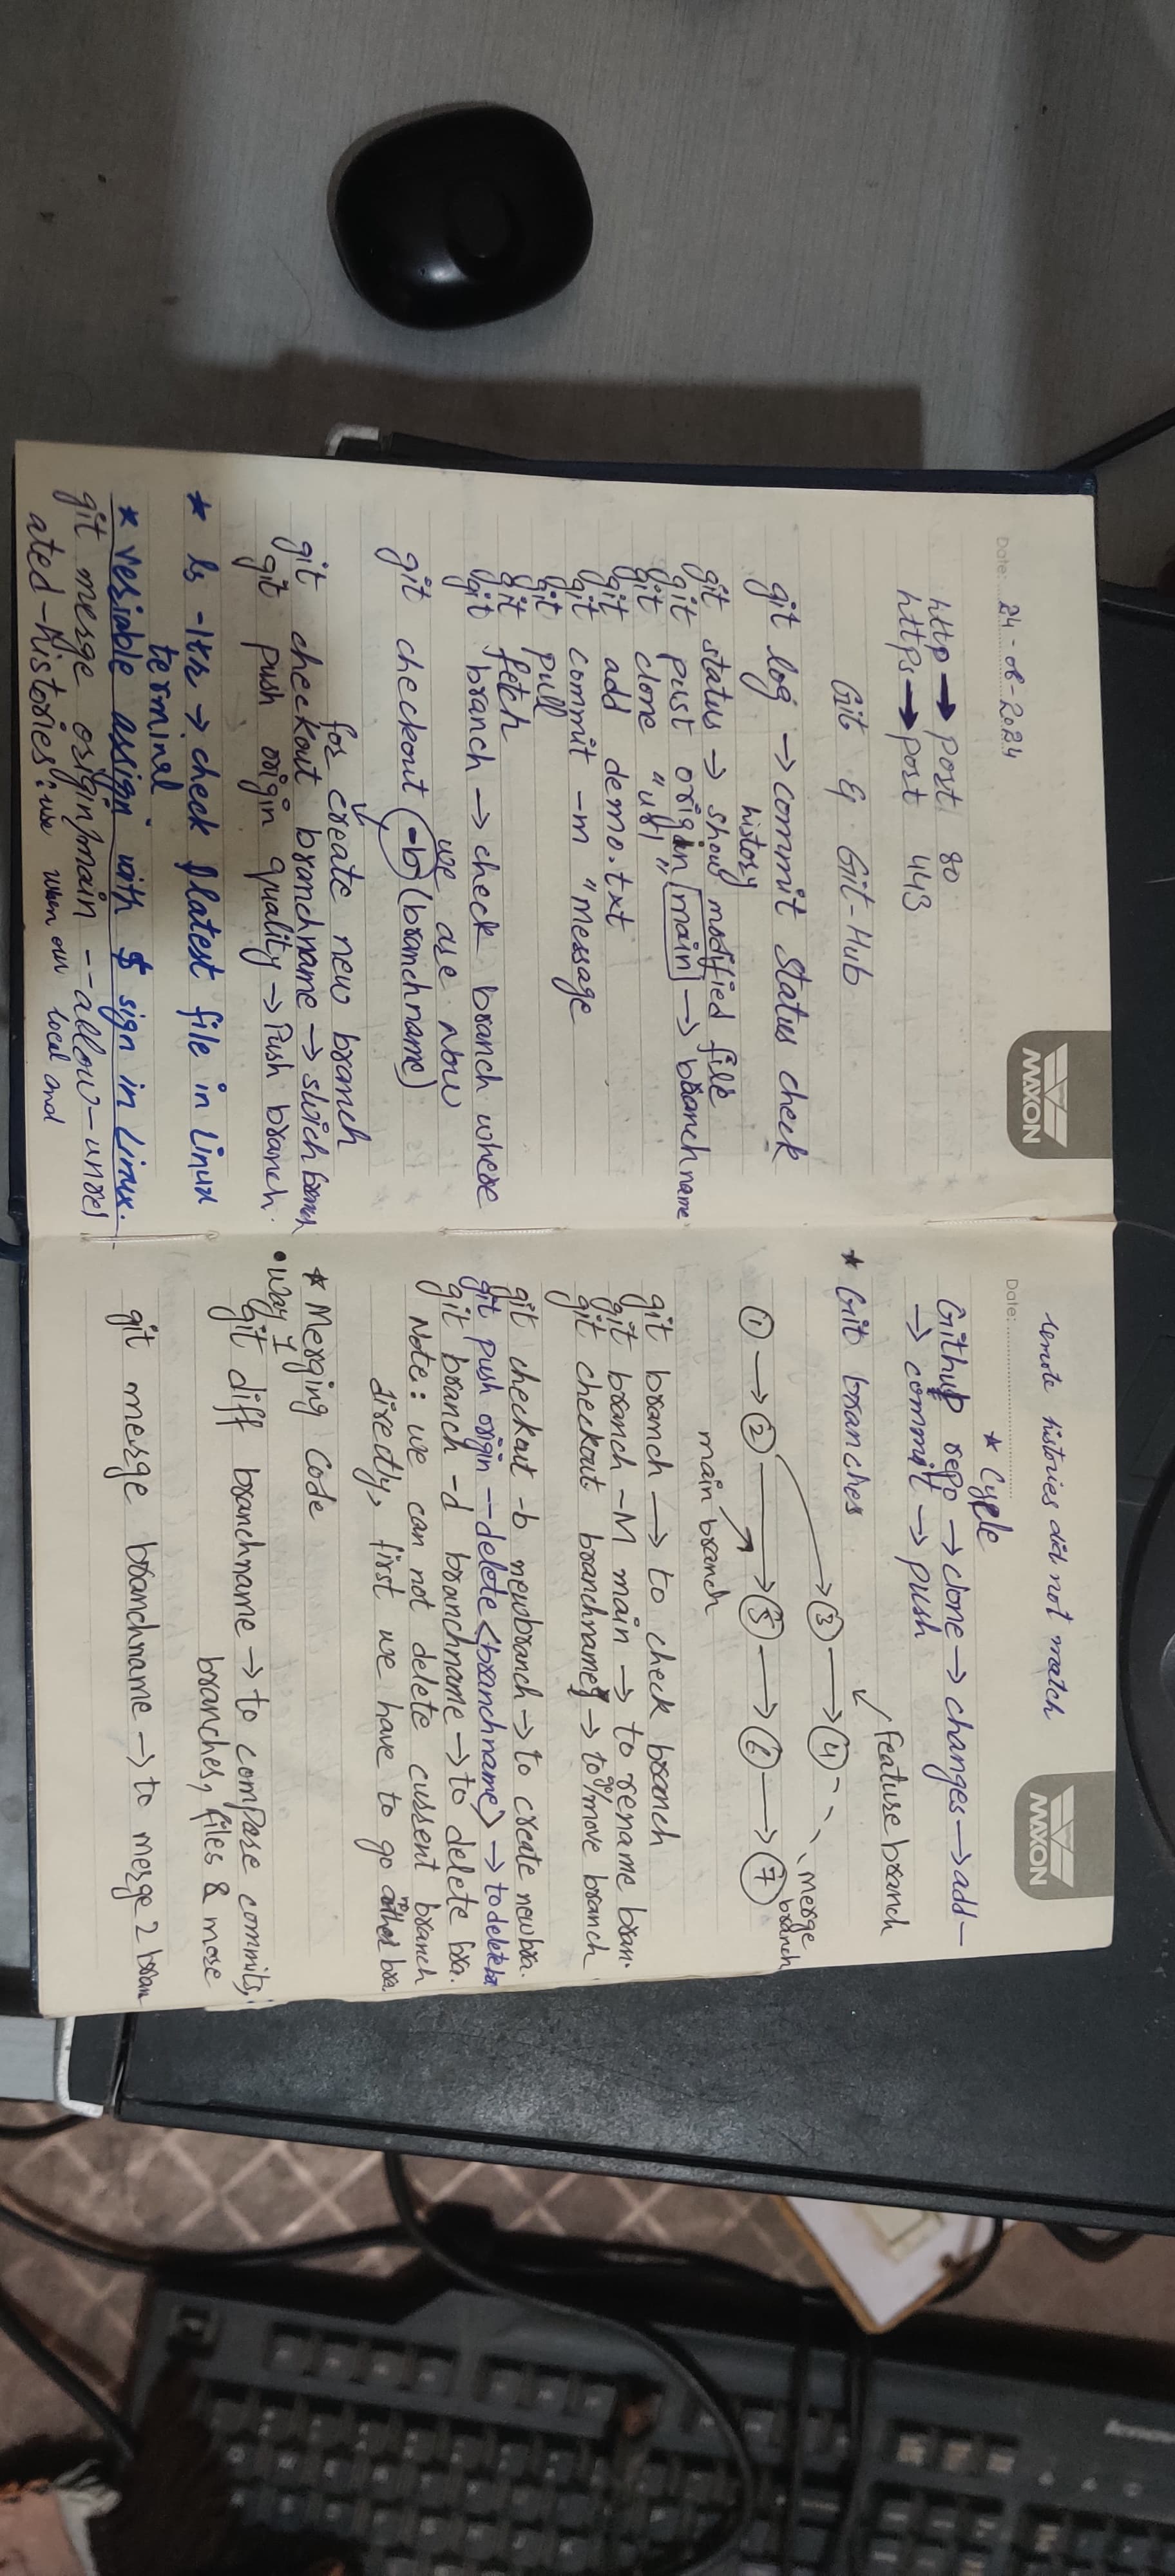 MAXON
Date: 24-08-2024
http → port 80
https → port 443
Git & Git-Hub
git log → commit status check
history
git status → show modified file
git push origin main → branch name
git clone "url"
git add demo.txt
git commit -m "message
git pull
git fetch
git branch → check branch where
we are now
git checkout (-b) (branchname)
for create new branch
git checkout branchname → swich branch
git push origin quality → Push branch.
* ls -ltr → check flatest file in Linux
terminal
* veriable assign with $ sign in Linux.
git merge origin/main --allow-unrel
ated-Histories: use when our local and
MAXON
remote histories did not match
Date:
* Cycle
Github repo → clone → changes → add —
→ commit → push
* Git branches
Feature branch
3 → 4
merge
branch
1 → 2 → 5 → 6 → 7
main branch
git branch → to check branch
git branch -M main → to rename bran.
git checkout branchname → to go/move branch
git checkout -b newbranch → to create new bra.
git push origin --delete <branchname> → to delete br
git branch -d branchname → to delete bra.
Note: we can not delete current branch
directly, first we have to go other bra.
* Merging Code
• way 1
git diff branchname → to compare commits,
branches, files & more
git merge branchname → to merge 2 bran